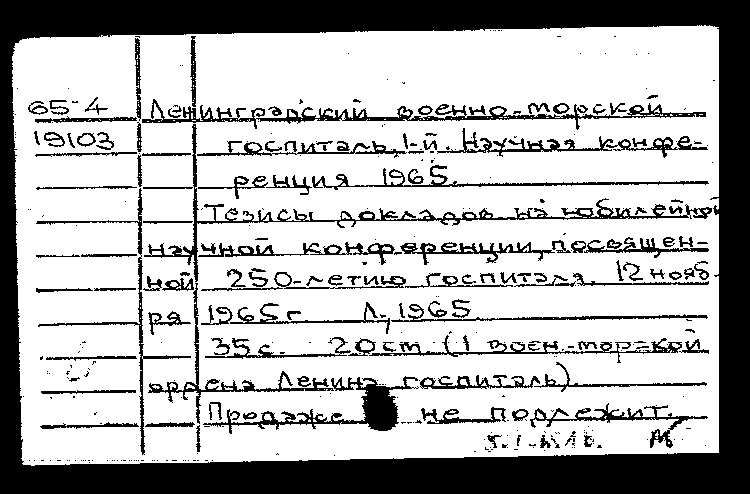 65-4 Ленинградский военно-морской
19103 госпиталь, 1-й. Научная конфе-
ренция 1965.
Тезисы докладов на юбилейной
научной конференции, посвящен-
ной 250-летию госпиталя. 12 нояб-
ря 1965 г Л., 1965.
35 с. 20 см. (1 воен.-морской
ордена Ленина госпиталь).
Продаже не подлежит.